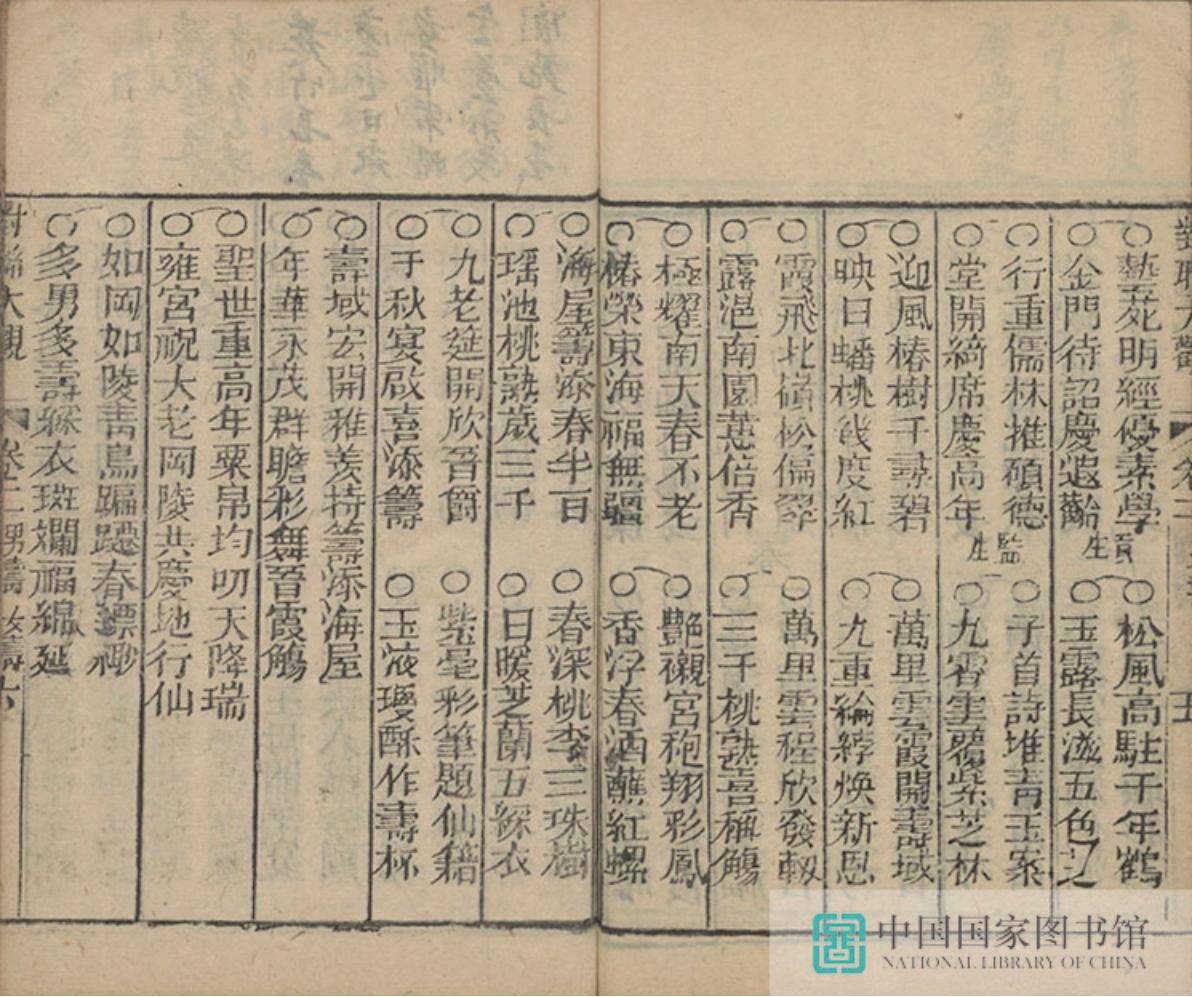 藝苑明經優素學
金門待詔慶遐齡
貢生
松風高駐千年鶴
玉露長滋五色芝
行重儒林推碩德
堂開綺席慶高年
監生
子首詩堆青玉案
九霄雲覆紫芝林
迎風椿樹千尋碧
映日蟠桃幾度紅
萬里雲霞開壽域
九重綸綍煥新恩
霞飛北嶺松偏翠
露浥南園蕙倍香
萬里雲程欣發軔
三千桃熟喜稱觴
極耀南天春不老
椿榮東海福無疆
艷襯宮袍翔彩鳳
香浮春酒蘸紅螺
海屋籌添春半百
瑶池桃熟歲三千
春深桃李三珠樹
日暖芝蘭五綵衣
九老筵開欣晉爵
千秋宴啟喜添籌
紫毫彩筆題仙籍
玉液瓊酥作壽杯
壽域宏開雅羨持籌添海屋
年華永茂群瞻彩舞晉霞觴
聖世重高年粟帛均叨天降瑞
雍宮祝大老岡陵共慶地行仙
如岡如陵青鳥蹁躚春縹緲
多男多壽綵衣斑斕福綿延
對聯大觀 卷二男壽 女壽 六
中国国家图书馆
NATIONAL LIBRARY OF CHINA